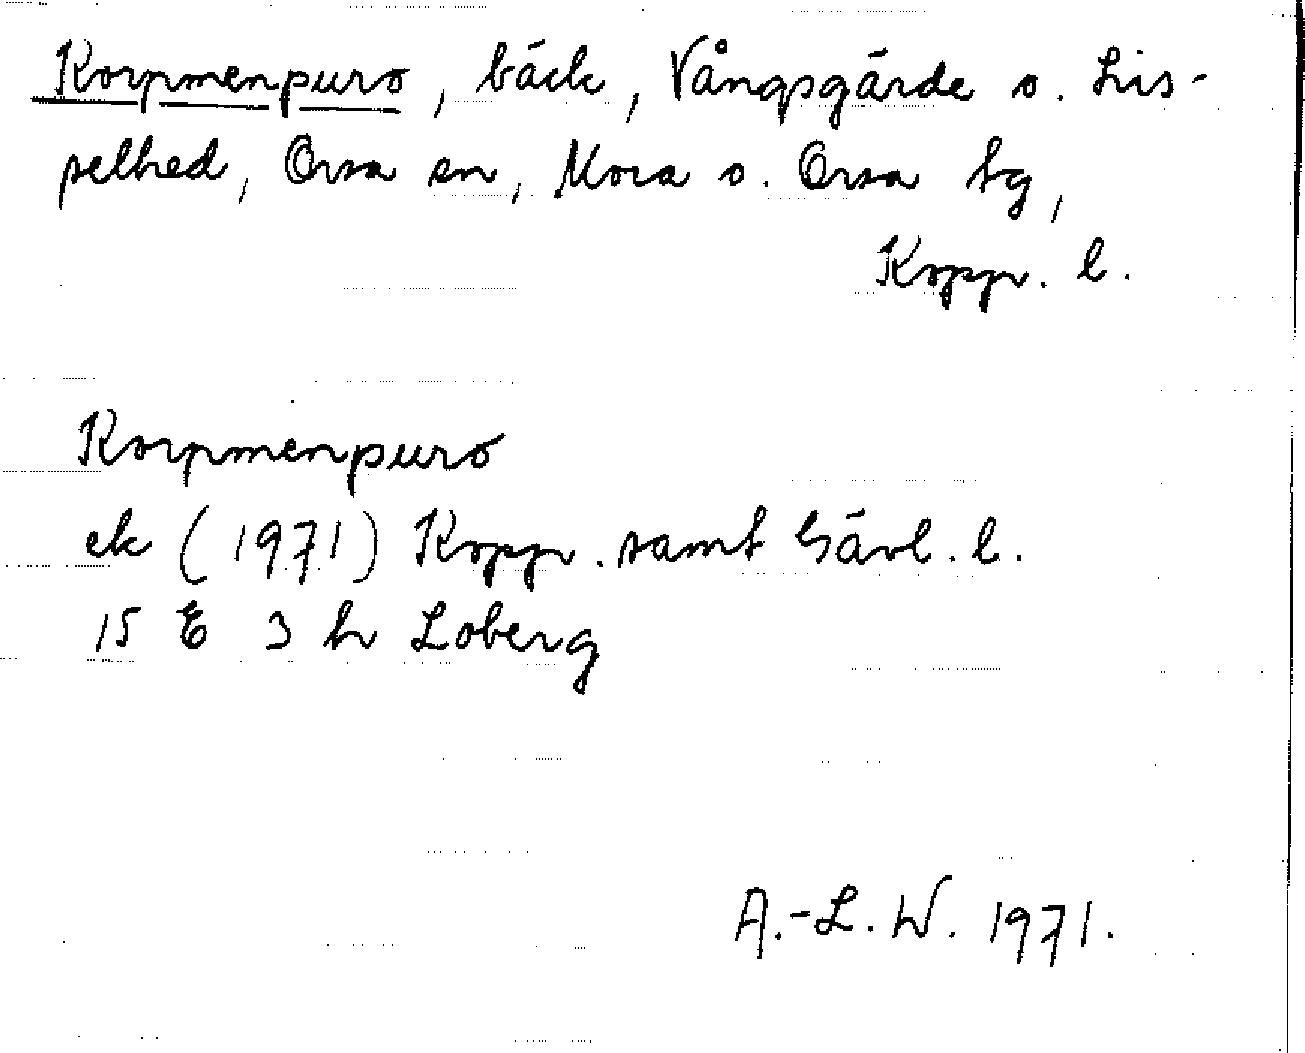 Korpmenpuro, bäck, Vångsgärde o. Lis-
pelhed, Orsa sn, Mora o. Orsa tg,
Kopp. l.
Korpmenpuro
ek (1971) Kopp. samt Gävl. l.
15 E 3 h Loberg
A.-L. W. 1971.